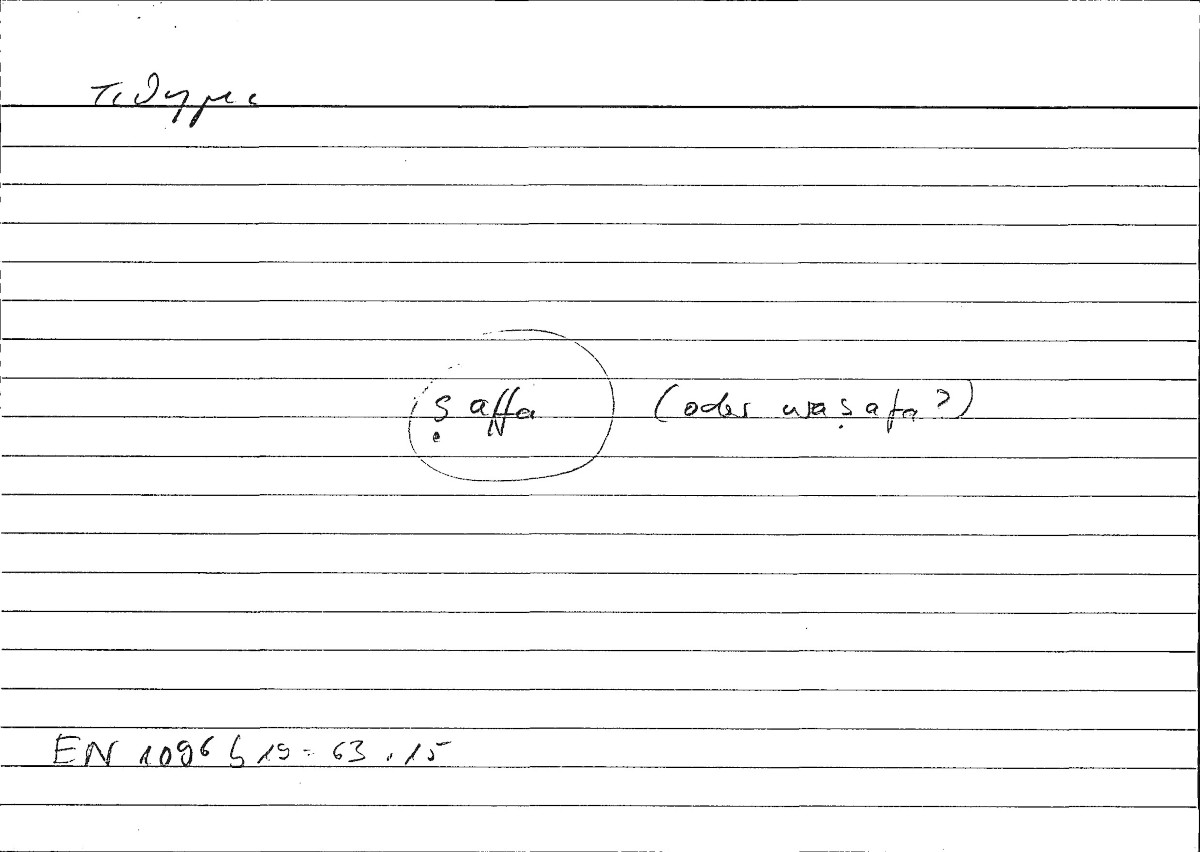 τιθημι
ṣaffa (oder waṣafa?)
EN 1096 b 19 = 63.15